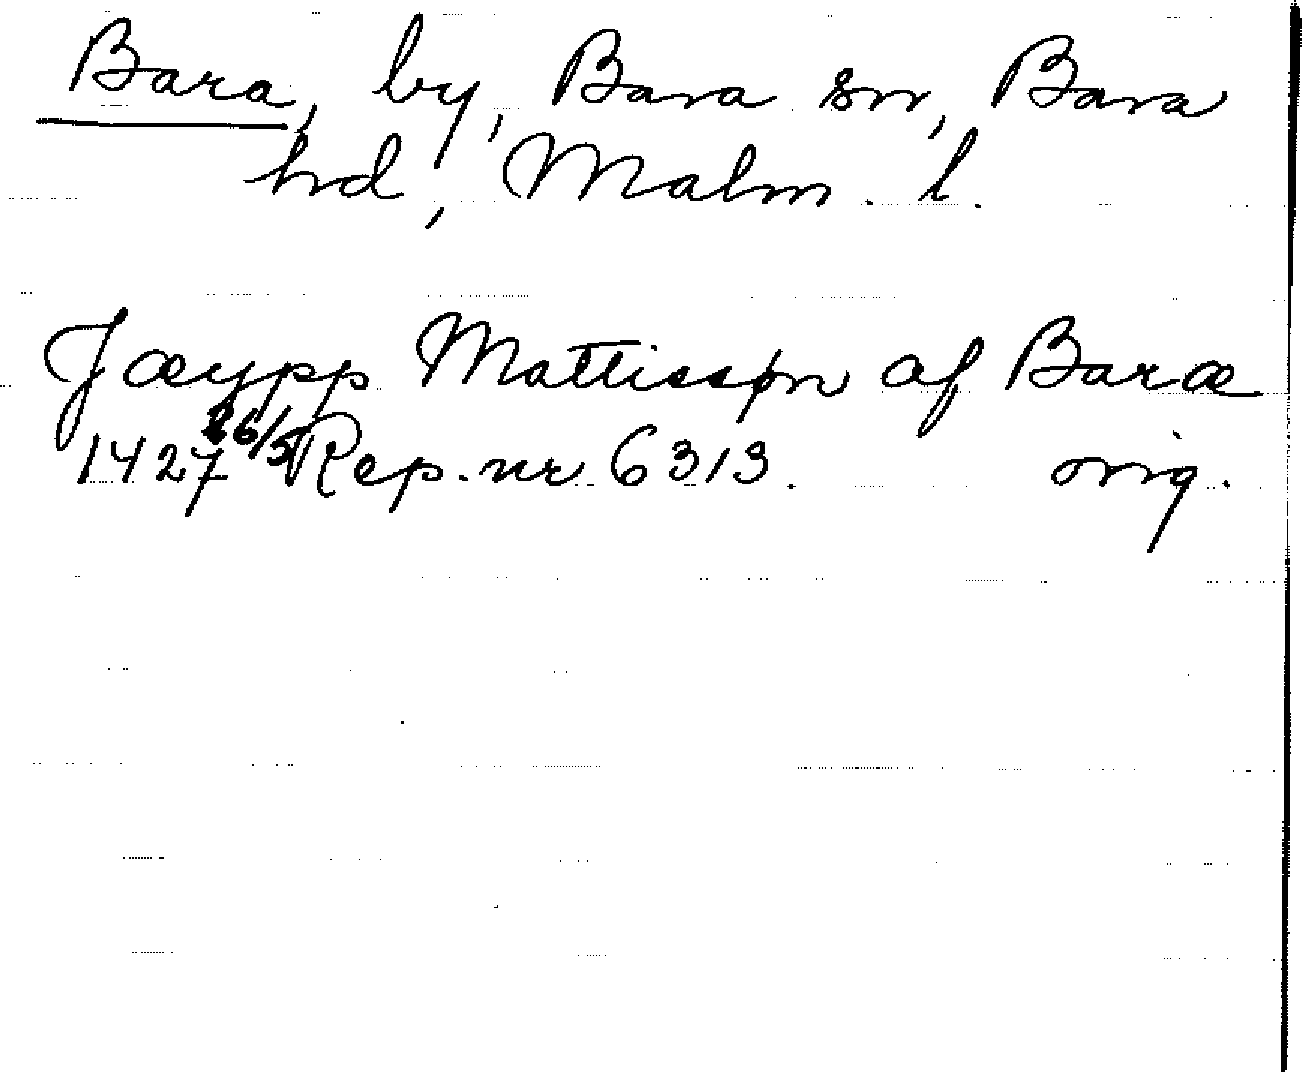 Bara, by, Bara sn, Bara
hd, Malm. l.
Jæypp Mattissøn af Baræ
1427 26/5 Rep. nr 6313. orig.